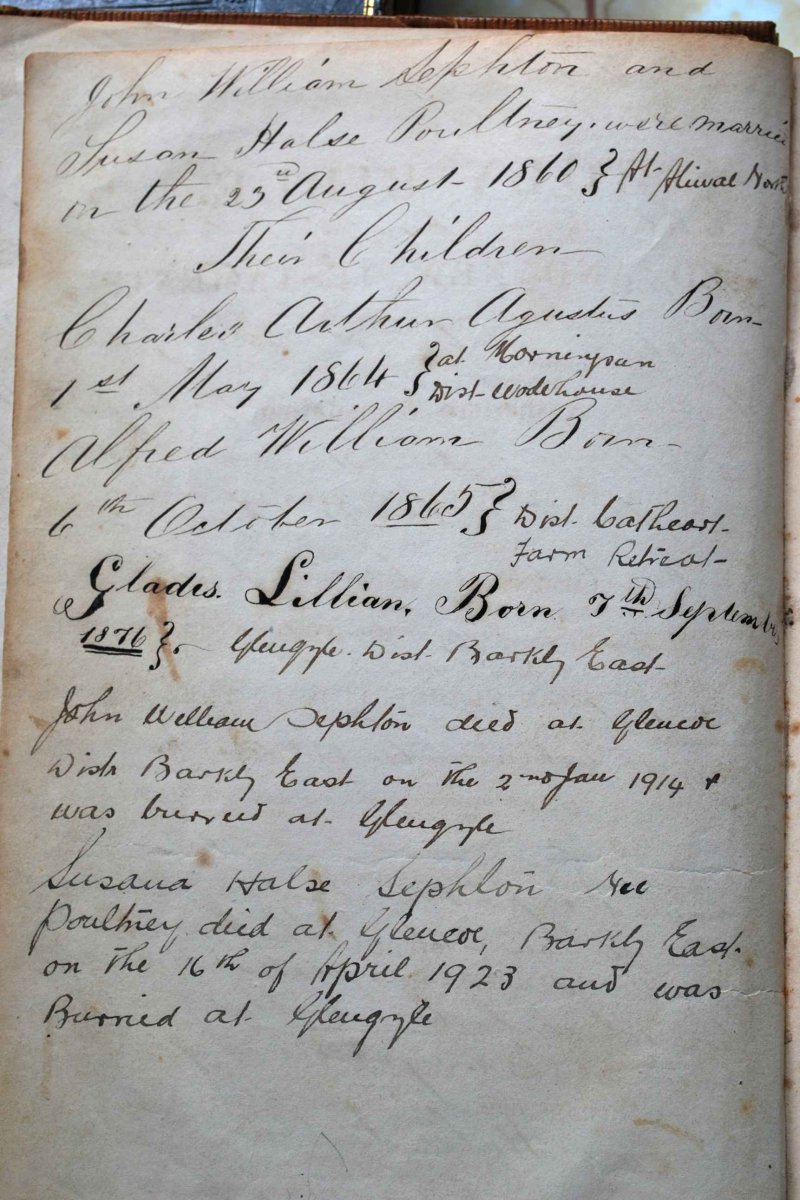 John William Sephton and
Susan Halse Poultney were married
on the 23rd August 1860 } At Aliwal North
Their Children
Charles Arthur Agustus Born
1st May 1864 } at Morningsun
Dist Wodehouse
Alfred William Born
6th October 1865 } Dist. Cathcart
Farm Retreat
Glades. Lillian. Born 7th September
1876 }. Glengyle. Dist. Barkly East
John William Sephton died at Glencoe
Dist Barkly East on the 2nd Jan 1914 &
was burried at Glengyle
Susana Halse Sephton Nee
Poultney died at Glencoe, Barkly East
on the 16th of April 1923 and was
Burried at Glengyle